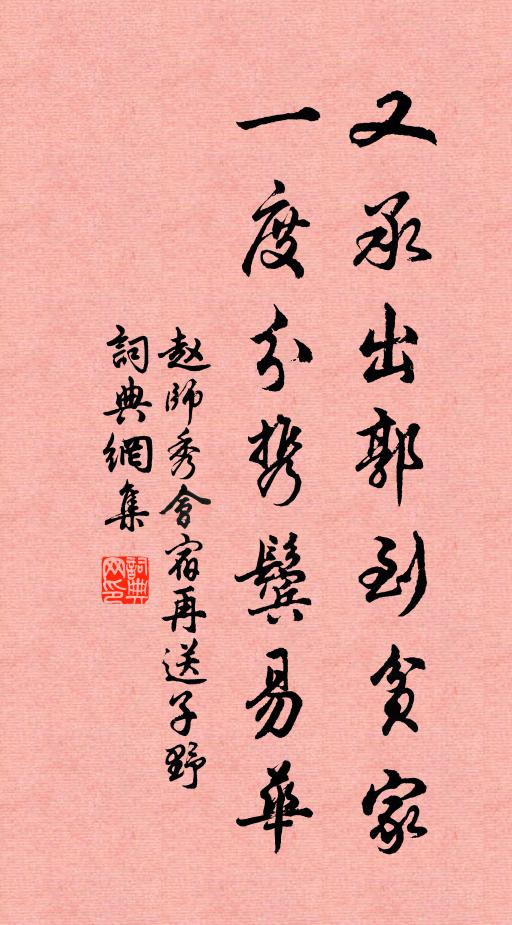 又承出郭到貧家
一度分携鬓易華
赵師秀會宿再送子野
詞典網集
詞典网印